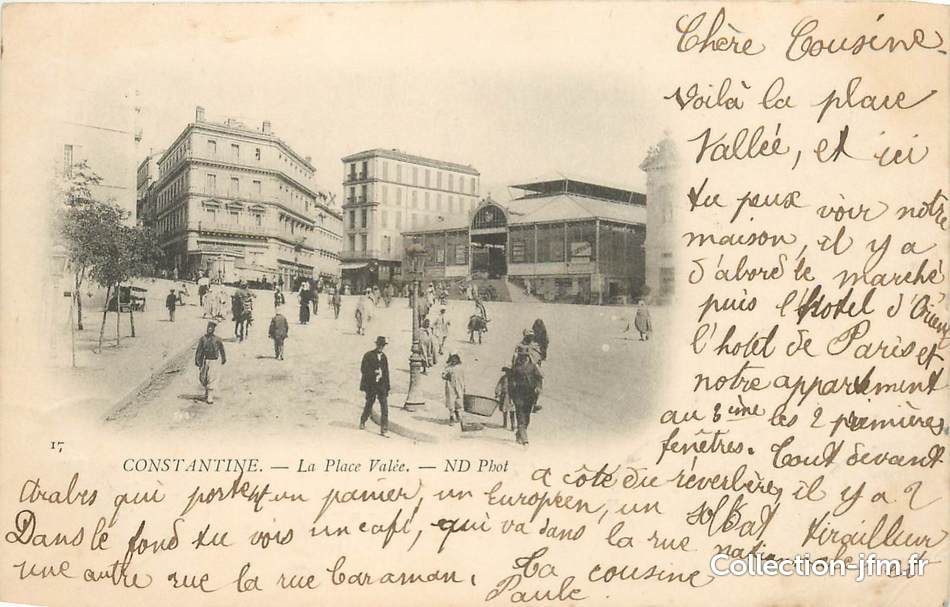 Chère Cousine.
Voilà la place
Vallée, et ici
tu peux voir notre
maison, il y a
d'abord le marché
puis l'hotel d'Orient
l'hotel de Paris et
notre appartement
au 3ème les 2 premières
fenêtres. Tout devant
17
CONSTANTINE. — La Place Valée. — ND Phot
a côté du réverbère, il y a 2
Arabes qui portent un panier, un Européen, un soldat tirailleur
Dans le fond tu vois un café, qui va dans la rue
une autre rue la rue Caraman. Ta cousine
Paule.
Collection-jfm.fr